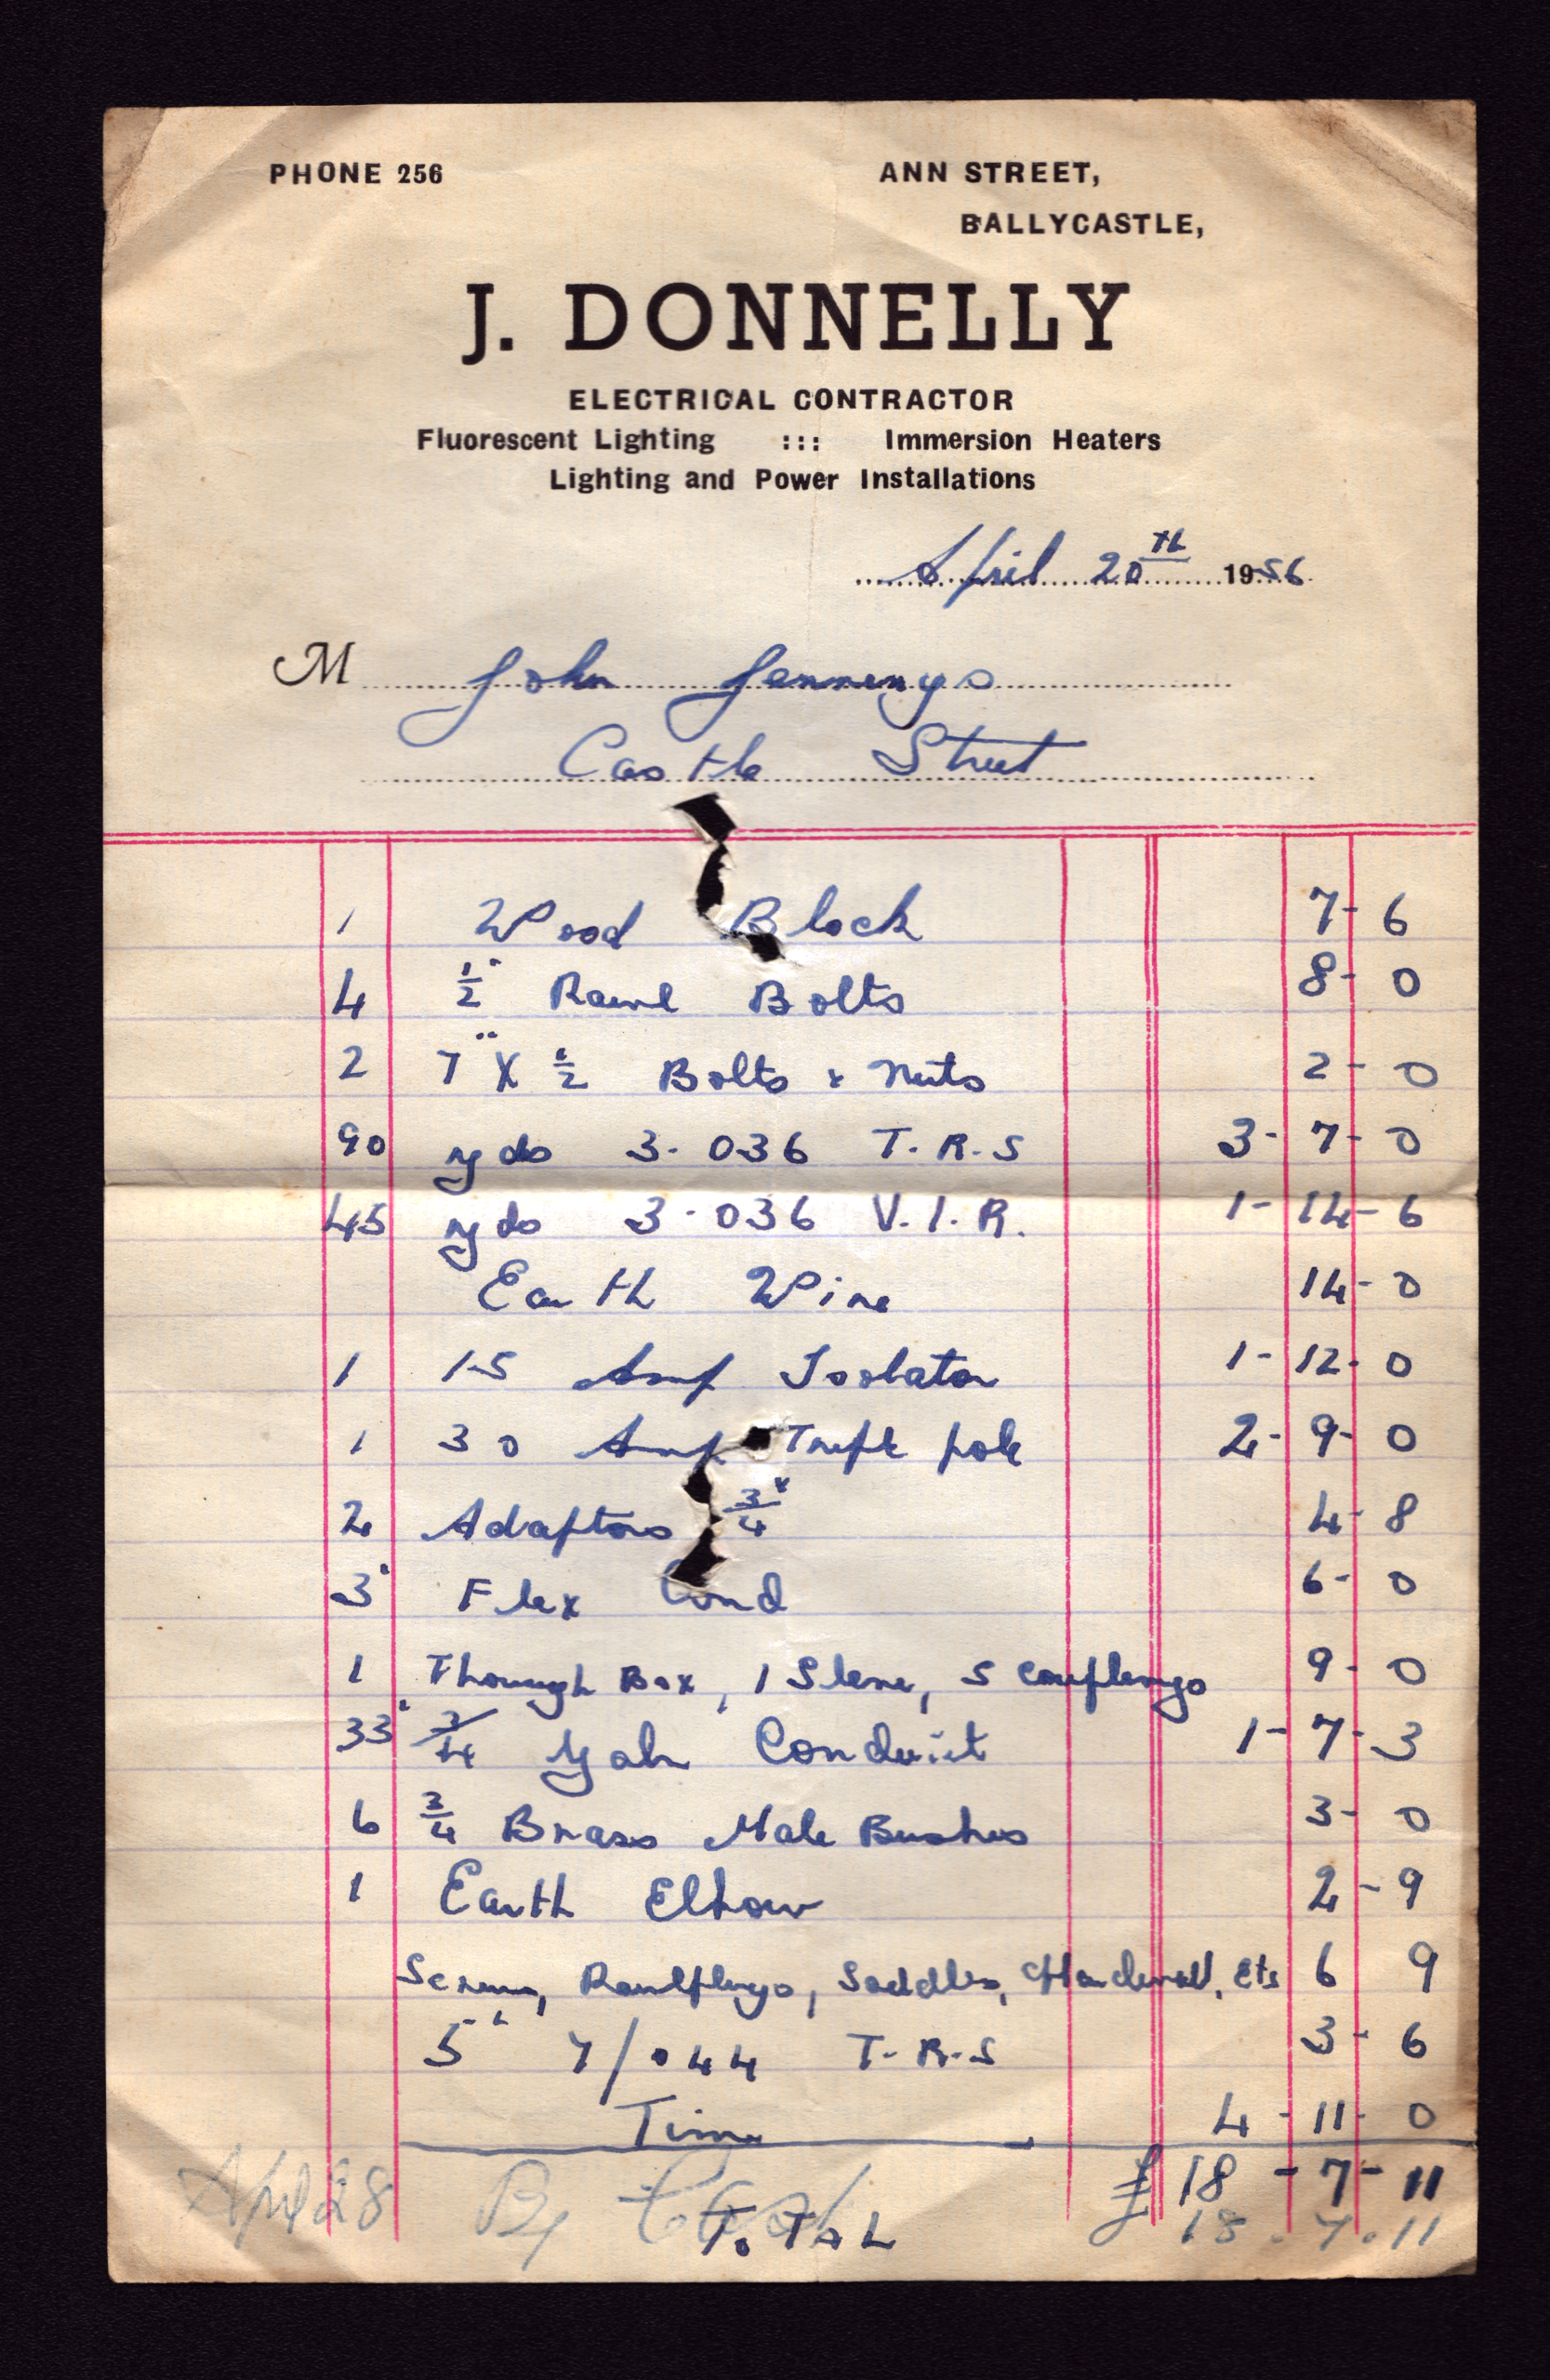 PHONE 256 ANN STREET,
BALLYCASTLE,
J. DONNELLY
ELECTRICAL CONTRACTOR
Fluorescent Lighting ::: Immersion Heaters
Lighting and Power Installations
April 20th 1956
M John Jennings
Castle Street
1 Wood Block 7-6
4 1/2" Rawl Bolts 8-0
2 7" X 1/2 Bolts & Nuts 2-0
90 yds 3.036 T.R.S 3-7-0
45 yds 3.036 V.I.R. 1-14-6
Earth Wire 14-0
1 15 Amp Isolator 1-12-0
1 30 Amp Triple pole 2-9-0
2 Adaptors 3/4" 4-8
3' Flex Cond 6-0
1 Through Box, 1 Sleeve, 5 Couplings 9-0
33' 3/4 Galv Conduit 1-7-3
6 3/4 Brass Male Bushes 3-0
1 Earth Elbow 2-9
Screws, Rawlplugs, Saddles, etc 6 9
5' 7/044 T.R.S 3-6
Time 4-11-0
£18-7-11
April 28 By Cash 18.7.11
ToTAL